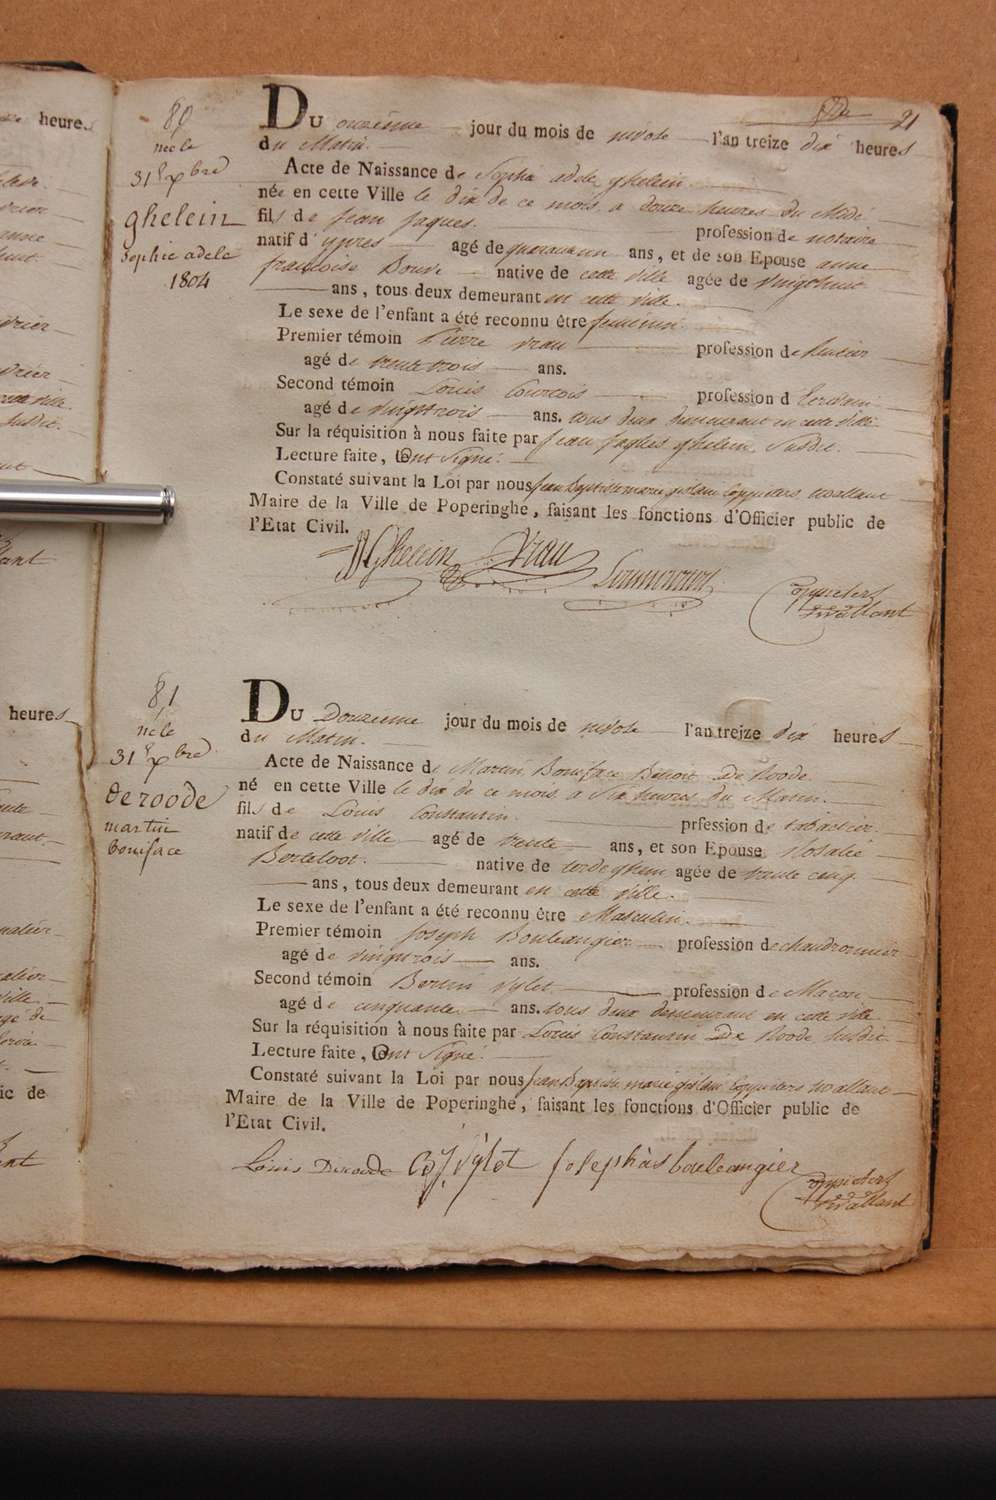 21
80
née le
31 Xbre
ghelein
Sophie adele
1804
Du onzième jour du mois de nivose l'an treize dix heures
du Matin.
Acte de Naissance de Sophie adele ghelein
née en cette Ville le dix de ce mois a douze heures du Midi
fils de Jean Jaques. profession de notaire
natif d'ypres agé de quarante un ans, et de son Epouse anne
françoise Bouve native de cette ville agée de vingthuit
ans, tous deux demeurant en cette ville.
Le sexe de l'enfant a été reconnu être feminin.
Premier témoin Pierre Vrau profession de huisier
agé de trente trois ans.
Second témoin Louis profession d'Ecrivain
agé de vingttrois ans. tous deux demeurant en cette ville.
Sur la réquisition à nous faite par Jean Jaques ghelein susdit.
Lecture faite, ont signé.
Constaté suivant la Loi par nous Jean Baptiste marie ghislain Coppieters wallant
Maire de la Ville de Poperinghe, faisant les fonctions d'Officier public de
l'Etat Civil.
JJ Ghelein Vrau
Coppieters
wallant
81
né le
31 Xbre
de roode
martin
boniface
Du Douzième jour du mois de nivose l'an treize dix heures
du Matin.
Acte de Naissance de Martin Boniface Benoit De Roode
né en cette Ville le dix de ce mois a Six heures du Matin.
fils de Louis Constantin. prfession de cabartier.
natif de cette ville agé de trente ans, et son Epouse Rosalie
Berteloot. native de agée de trente cinq
ans, tous deux demeurant en cette ville.
Le sexe de l'enfant a été reconnu être Masculin.
Premier témoin Joseph Boulangier profession de chaudronnier
agé de vingttrois ans.
Second témoin Bertin Vylet profession de Maçon
agé de cinquante ans. tous deux demeurant en cette ville
Sur la réquisition à nous faite par Louis Constantin De Roode susdit.
Lecture faite, ont signé.
Constaté suivant la Loi par nous Jean Baptiste marie ghislain Coppieters wallant
Maire de la Ville de Poperinghe, faisant les fonctions d'Officier public de
l'Etat Civil.
Louis Deroode Vylet Josephus boulangier
Coppieters
wallant